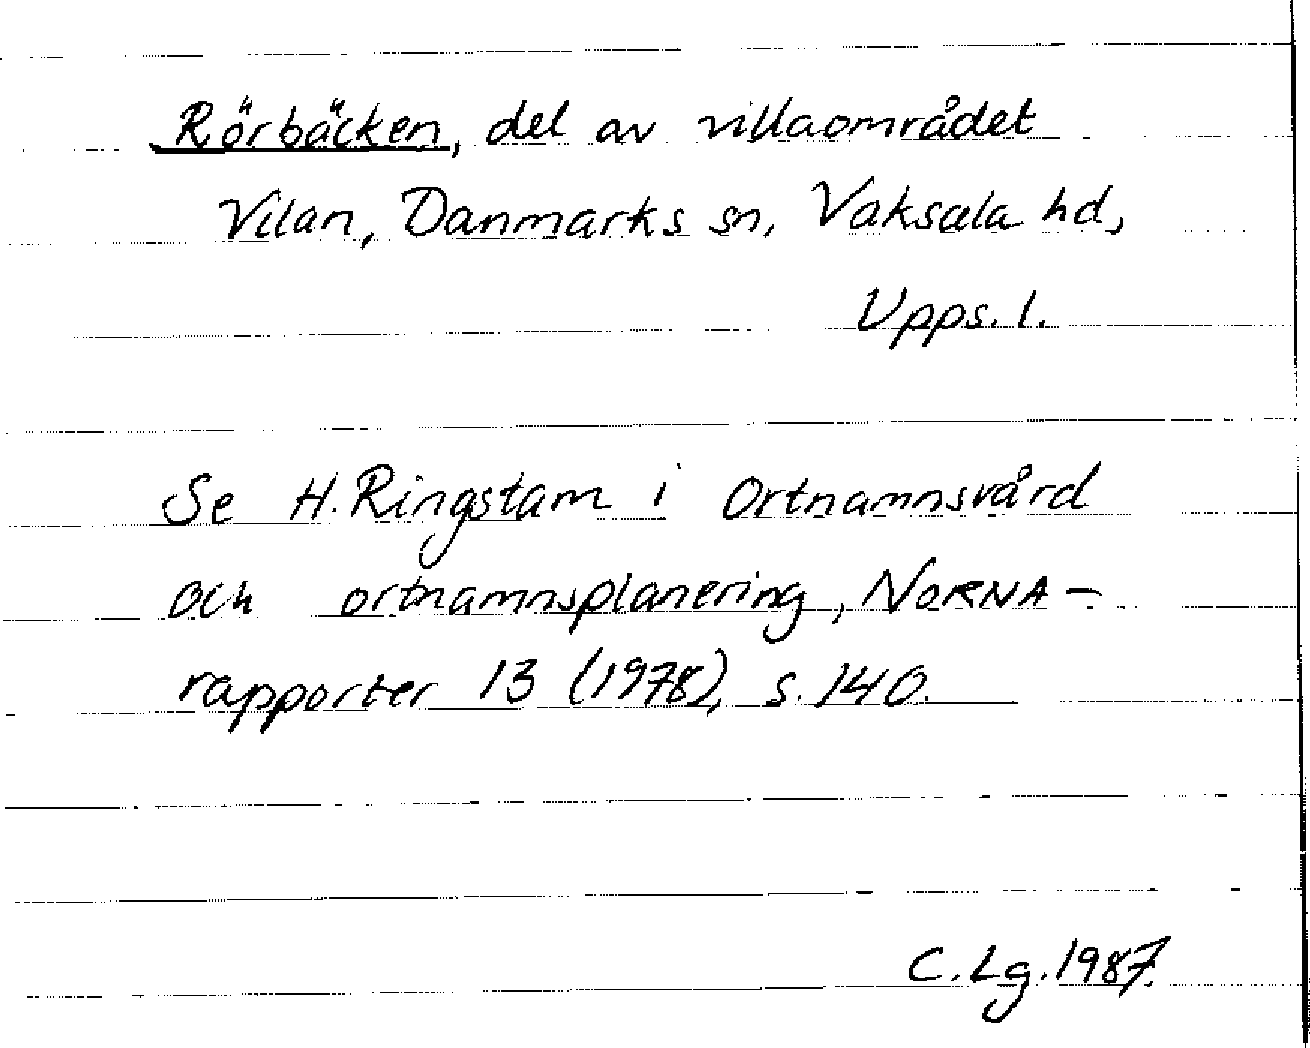 Rörbäcken, del av villaområdet
Vilan, Danmarks sn, Vaksala hd,
Upps. l.
Se H. Ringstam i Ortnamnsvård
och ortnamnsplanering, NORNA-
rapporter 13 (1978), s. 140.
C. Lg. 1987.